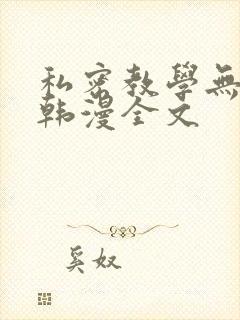 私密教學無
韩漫全文
奚奴